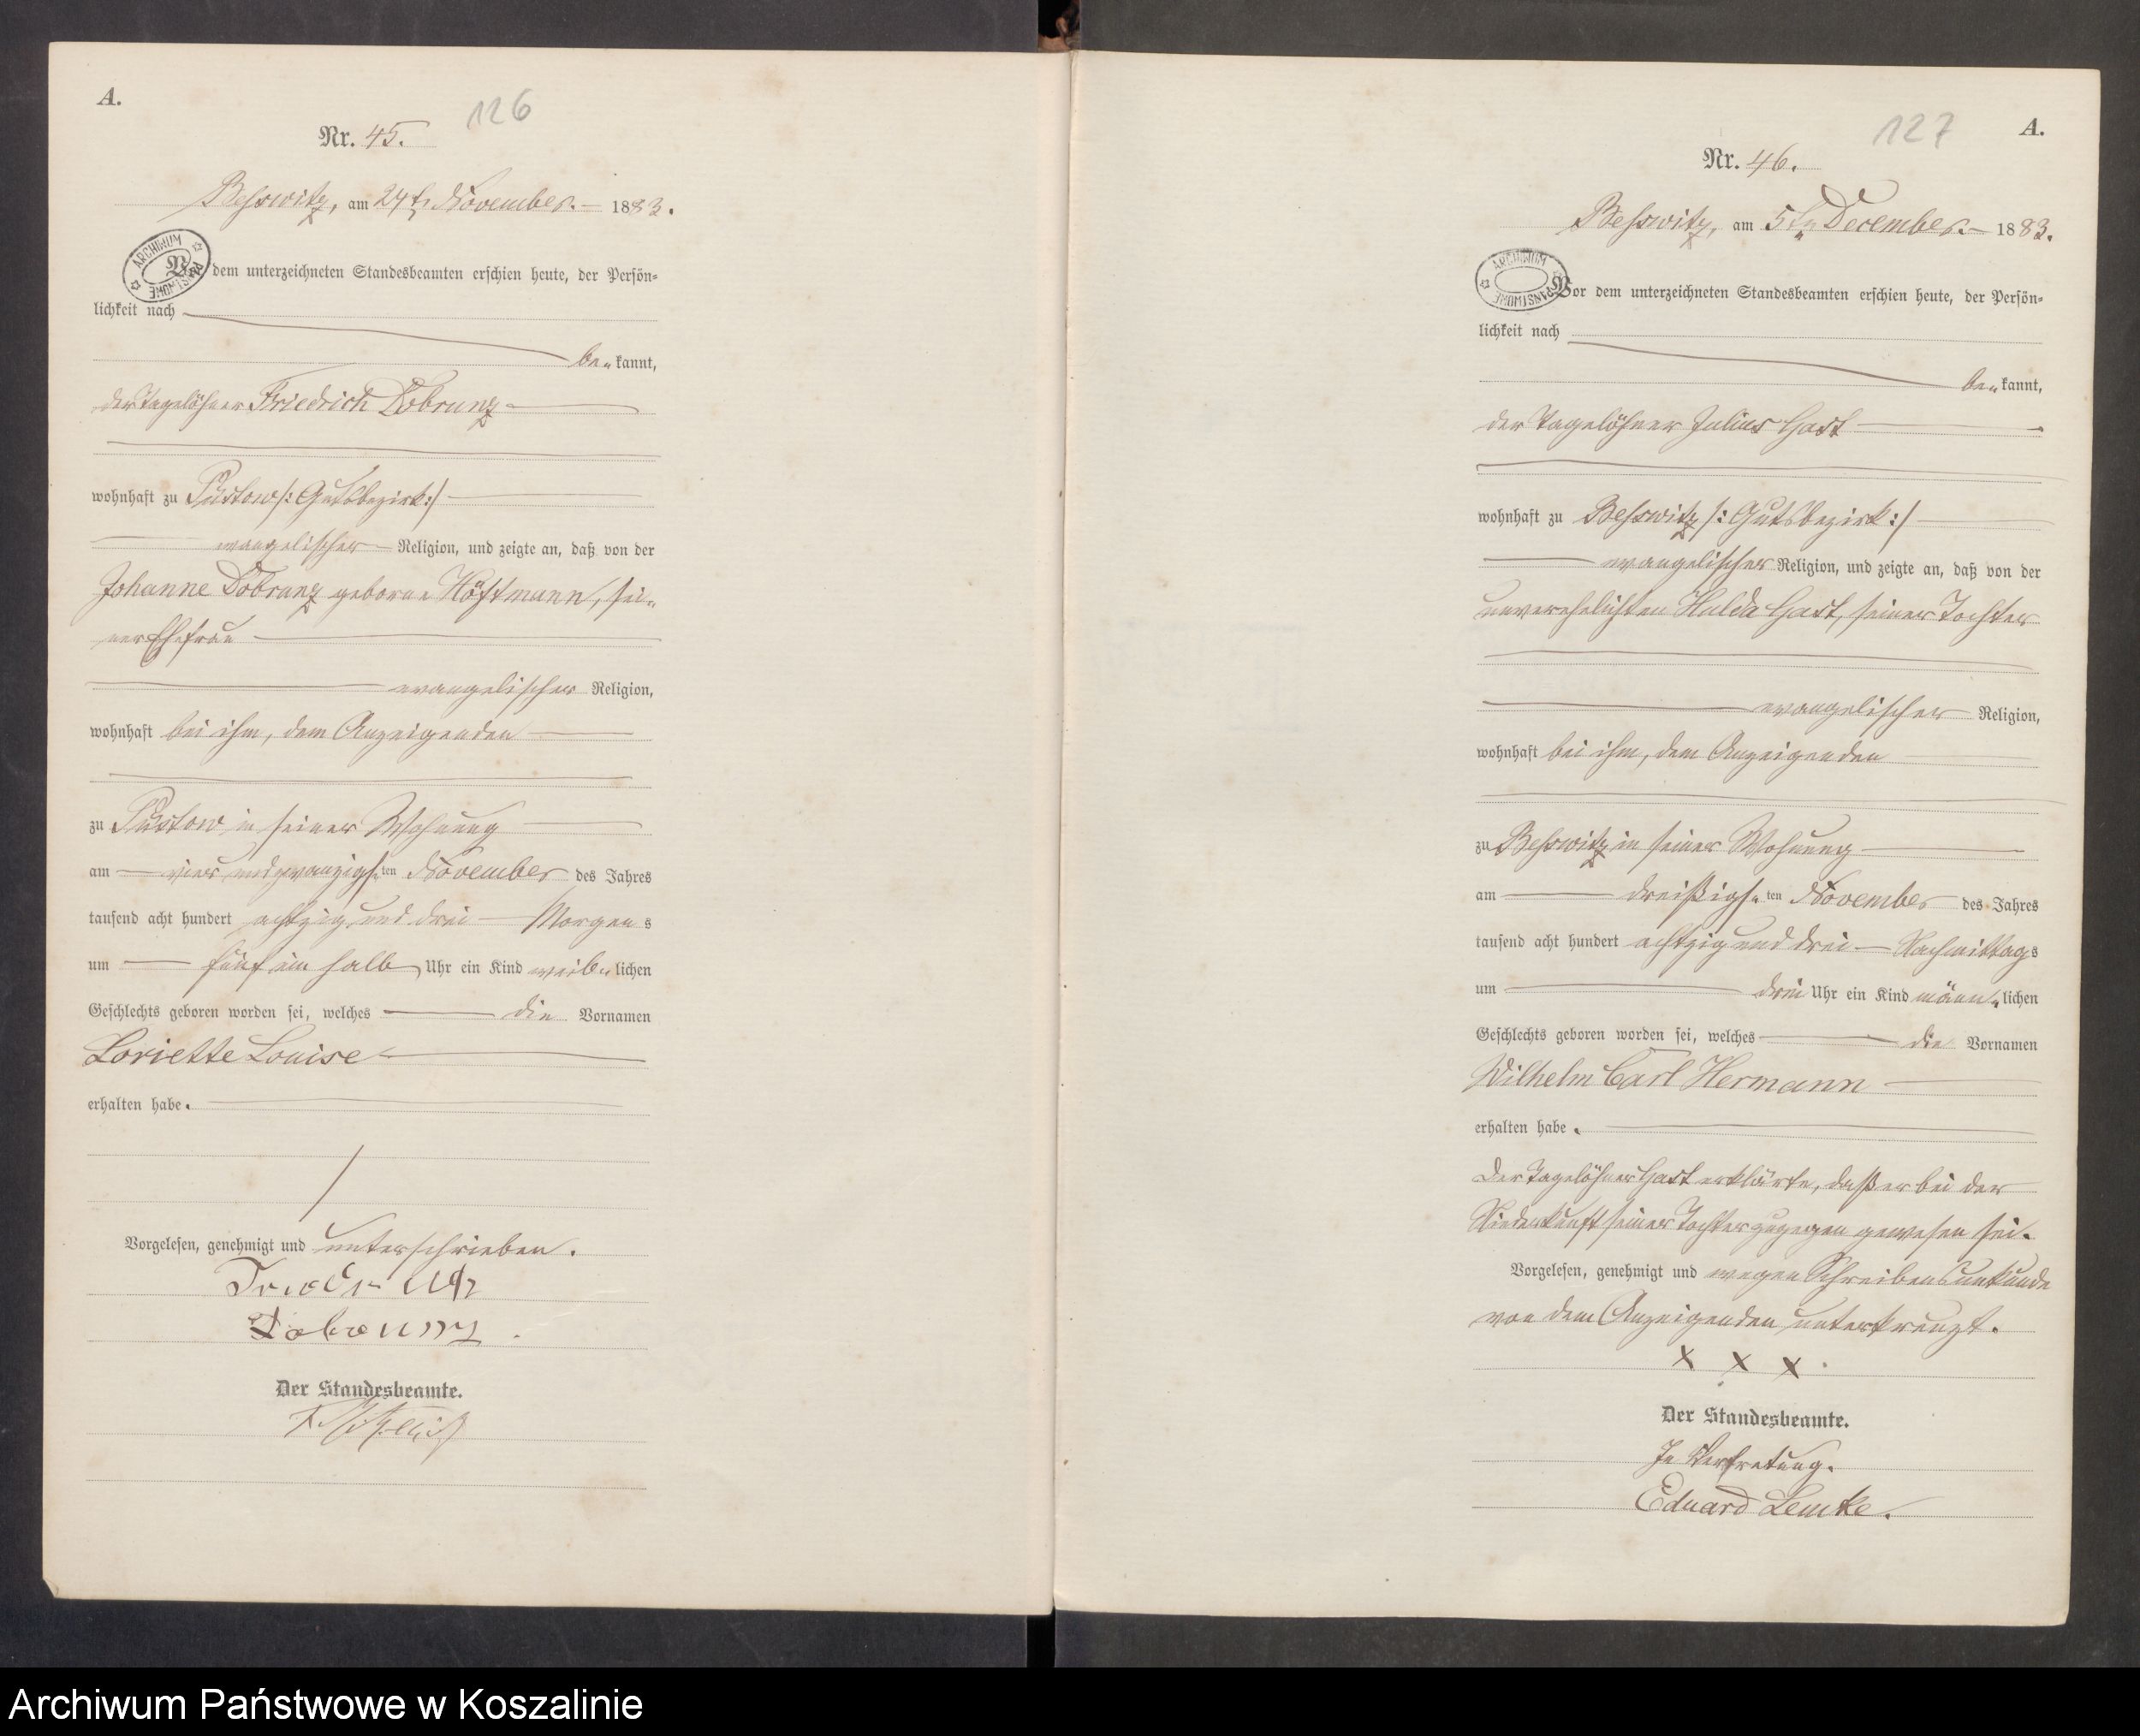 A.
126
Nr. 45.
Beßwitz, am 24t. November. 1883.
ARCHIWUM PAŃSTWOWE
V dem unterzeichneten Standesbeamten erschien heute, der Persön=
lichkeit nach
be„kannt,
der Tagelöhner Friedrich Dobrunz
wohnhaft zu Püstow /: Gutsbezirk :/
evangelischer Religion, und zeigte an, daß von der
Johanne Dobrunz geborne Höftmann, sei„
ner Ehefrau
evangelischer Religion,
wohnhaft bei ihm, dem Anzeigenden
zu Püstow in seiner Wohnung
am vier und zwanzigs„ten November des Jahres
tausend acht hundert achtzig und drei Morgens
um fünf ein halb Uhr ein Kind weib„lichen
Geschlechts geboren worden sei, welches die Vornamen
Loriette Louise
erhalten habe.
Vorgelesen, genehmigt und unterschrieben.
Friedrich
Dobrunz.
Der Standesbeamte.
127
A.
Nr. 46.
Beßwitz, am 5ten December. 1883.
ARCHIWUM PAŃSTWOWE
Vor dem unterzeichneten Standesbeamten erschien heute, der Persön=
lichkeit nach
be„kannt,
der Tagelöhner Julius Hast
wohnhaft zu Beßwitz /: Gutsbezirk :/
evangelischer Religion, und zeigte an, daß von der
unverehelichten Hulda Hast, seiner Tochter
evangelischer Religion,
wohnhaft bei ihm, dem Anzeigenden
zu Beßwitz in seiner Wohnung
am dreißigs„ten November des Jahres
tausend acht hundert achtzig und drei Nachmittags
um drei Uhr ein Kind männ„lichen
Geschlechts geboren worden sei, welches die Vornamen
Wilhelm Carl Hermann
erhalten habe.
Der Tagelöhner Hast erklärte, daß er bei der
Niederkunft seiner Tochter zugegen gewesen sei.
Vorgelesen, genehmigt und wegen Schreibensunkunde
von dem Anzeigenden unterkreuzt.
x x x.
Der Standesbeamte.
In Vertretung.
Eduard Lemke.
Archiwum Państwowe w Koszalinie